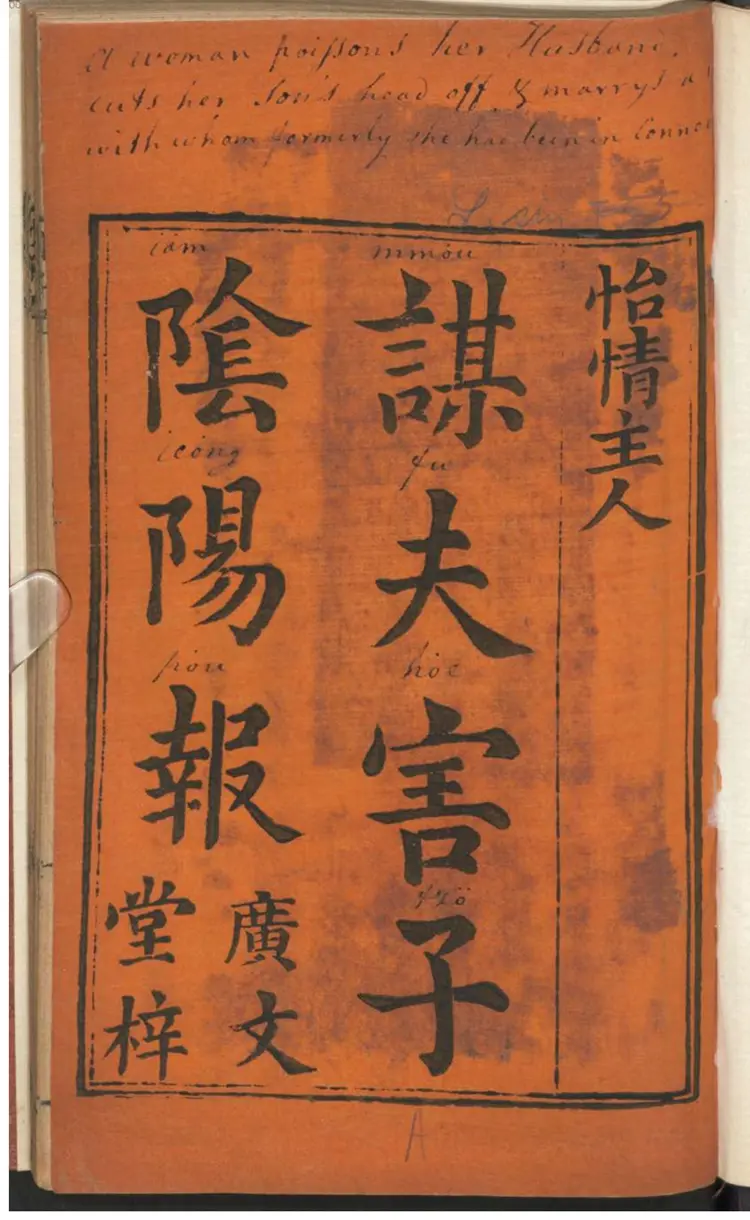 A woman poisons her Husband,
cuts her Son's head off & marrys a
with whom formerly she had been in Connec
怡情主人
mmôu
謀
fu
夫
hóe
害
tzö
子
iam
陰
icong
陽
pou
報
廣文
堂梓
A